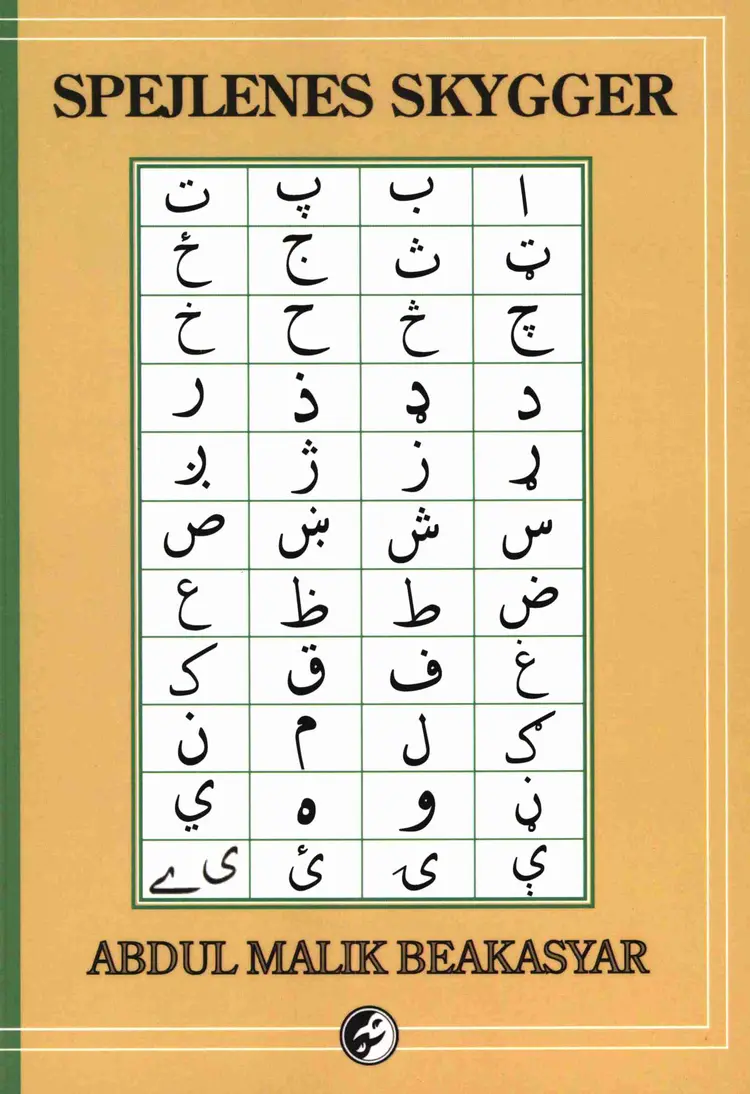 SPEJLENES SKYGGER
ا ب پ ت
ټ ث ج ځ
چ څ ح خ
د ډ ذ ر
ړ ز ژ ږ
س ش ښ ص
ض ط ظ ع
غ ف ق ک
ګ ل م ن
ڼ و ه ي
ې ۍ ئ ی ے
ABDUL MALIK BEAKASYAR